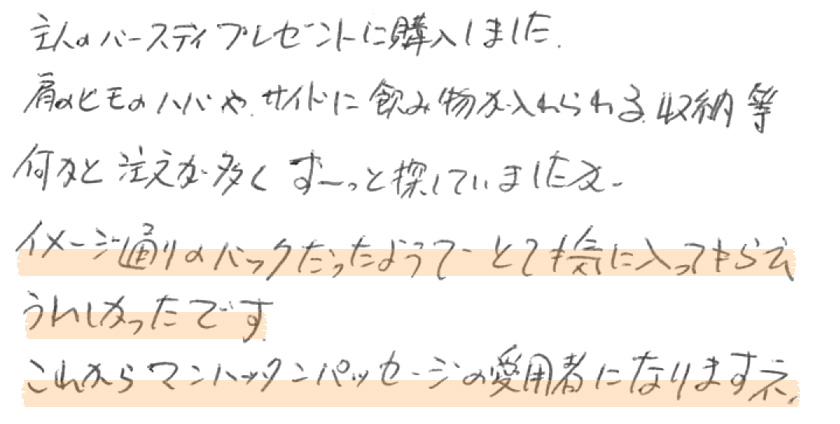 主人のバースディプレゼントに購入しました。
肩のヒモのハバや、サイドに飲み物が入れられる収納等
何かと注文が多く ずーっと探していましたが
イメージ通りのバックだったようで とても気に入ってもらえ
うれしかったです。
これからマンハッタンパッセージの愛用者になりますネ。